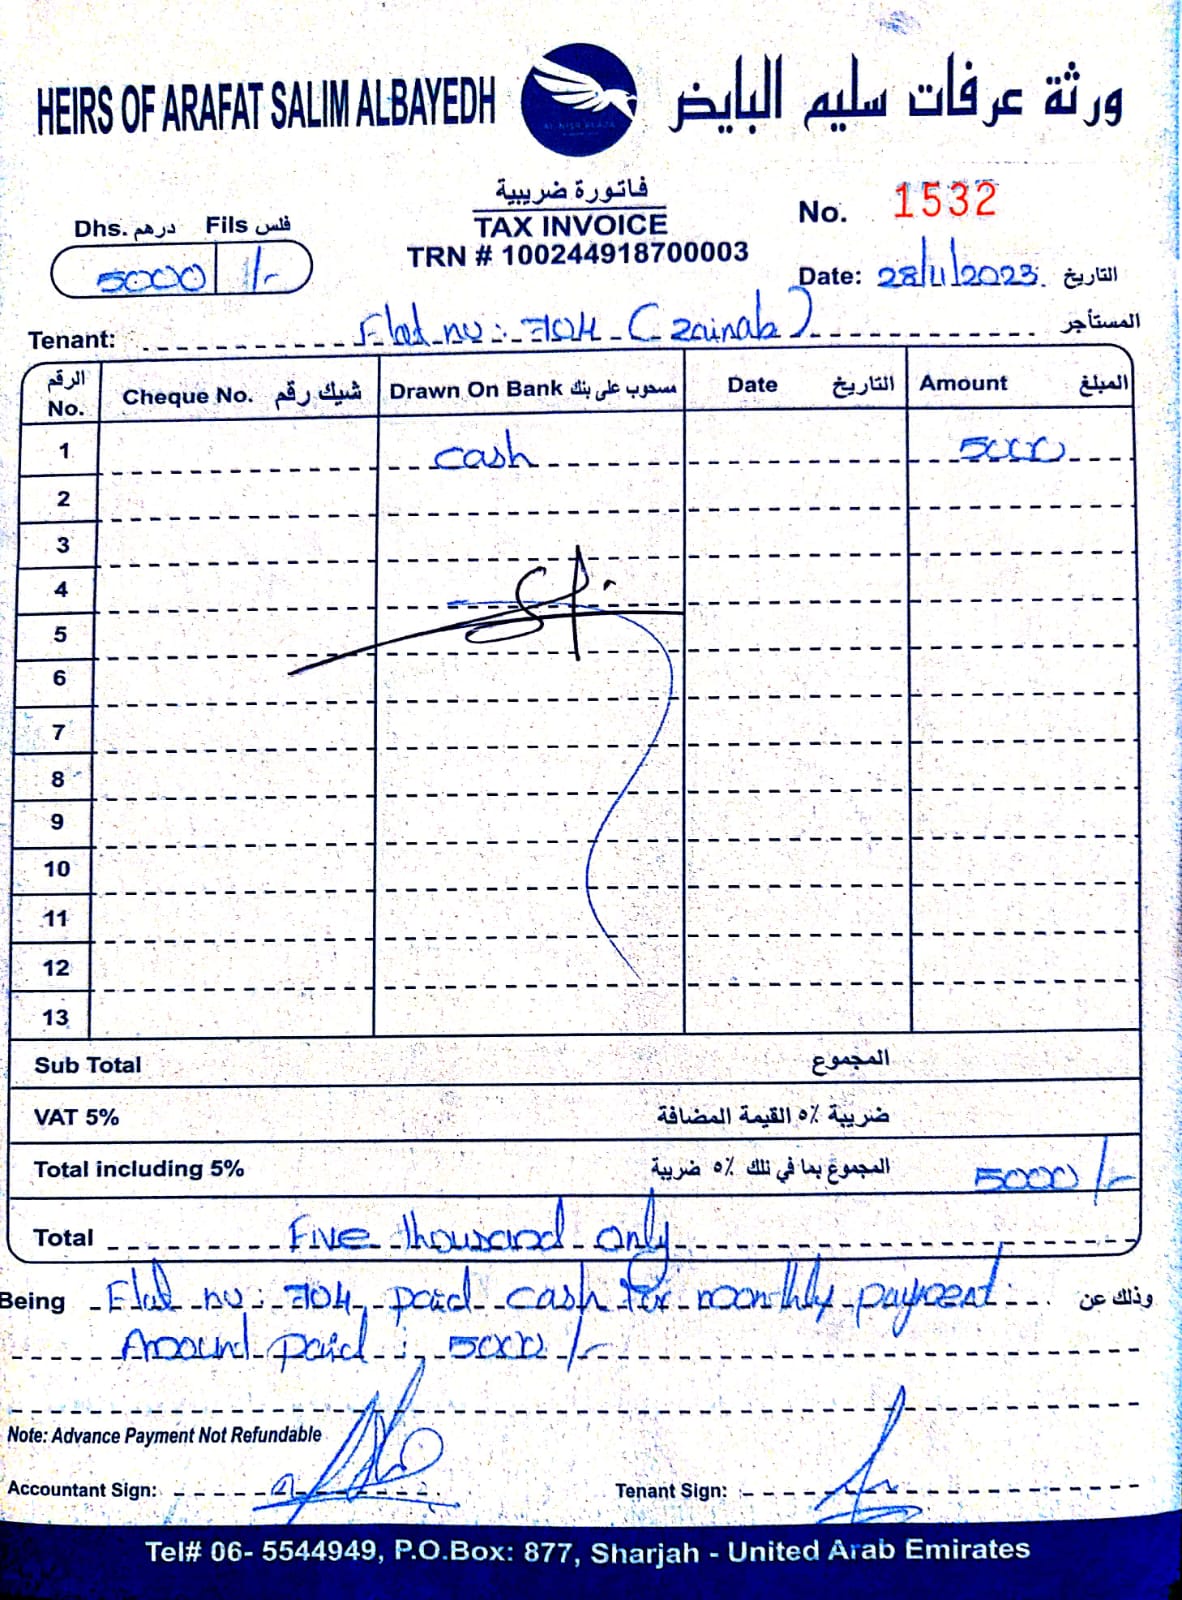 HEIRS OF ARAFAT SALIM ALBAYEDH
ورثة عرفات سليم البايض
AL NISR PLAZA
فاتورة ضريبية
TAX INVOICE
TRN # 100244918700003
No. 1532
Dhs. درهم Fils فلس
5000 /-
Date: 28/11/2023. التاريخ
Tenant: Flat no: 704 (zainab) المستأجر
الرقم No. Cheque No. شيك رقم Drawn On Bank مسحوب على بنك Date التاريخ Amount المبلغ
1 cash 5000
2
3
4
5
6
7
8
9
10
11
12
13
Sub Total المجموع
VAT 5% ضريبة ٥٪ القيمة المضافة
Total including 5% المجموع بما في ذلك ٥٪ ضريبة 5000/-
Total Five thousand only
Being Flat no: 704, paid cash for monthly payment. وذلك عن
Amount paid: 5000/-
Note: Advance Payment Not Refundable
Accountant Sign: Tenant Sign:
Tel# 06- 5544949, P.O.Box: 877, Sharjah - United Arab Emirates